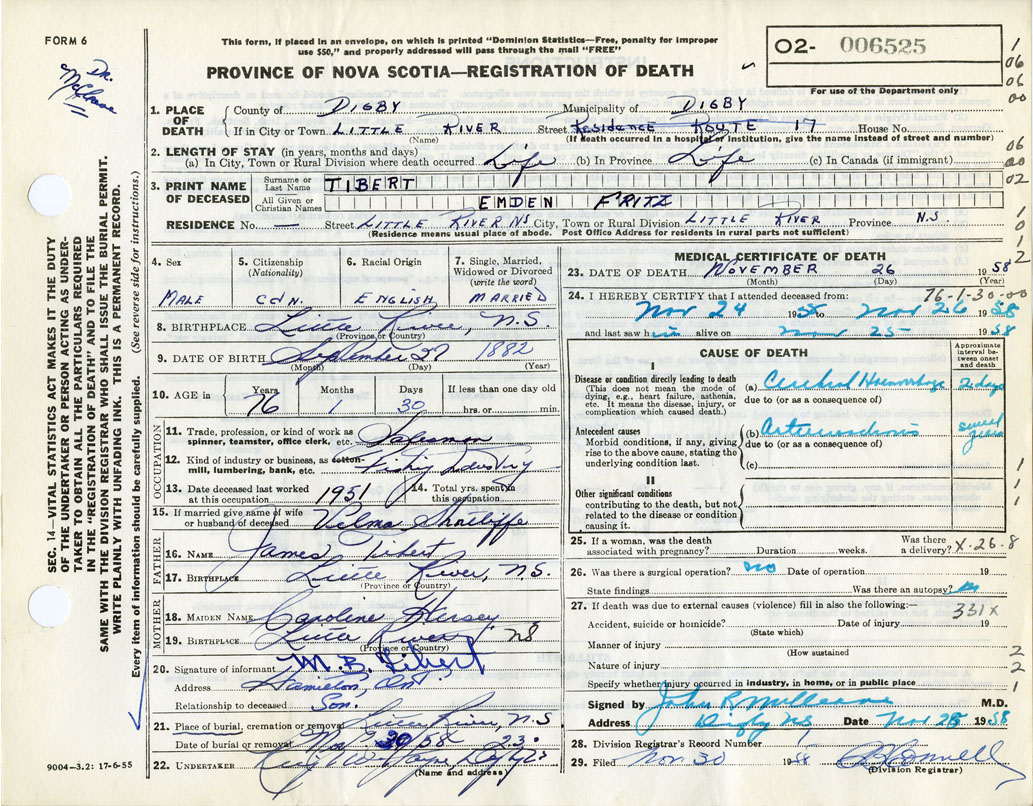 FORM 6
Dr.
This form, if placed in an envelope, on which is printed "Dominion Statistics—Free, penalty for improper
use $50," and properly addressed will pass through the mail "FREE"
PROVINCE OF NOVA SCOTIA—REGISTRATION OF DEATH
02- 006525
For use of the Department only
1
06
06
00
06
00
02
1
0
1
2
SEC. 14—VITAL STATISTICS ACT MAKES IT THE DUTY
OF THE UNDERTAKER OR PERSON ACTING AS UNDER-
TAKER TO OBTAIN ALL THE PARTICULARS REQUIRED
IN THE "REGISTRATION OF DEATH" AND TO FILE THE
SAME WITH THE DIVISION REGISTRAR WHO SHALL ISSUE THE BURIAL PERMIT.
WRITE PLAINLY WITH UNFADING INK. THIS IS A PERMANENT RECORD.
Every item of information should be carefully supplied. (See reverse side for instructions.)
1. PLACE OF DEATH County of DIGBY Municipality of DIGBY
If in City or Town LITTLE RIVER Street Residence ROUTE 17 House No.
(Name) (If death occurred in a hospital or institution, give the name instead of street and number)
2. LENGTH OF STAY (in years, months and days)
(a) In City, Town or Rural Division where death occurred Life (b) In Province Life (c) In Canada (if immigrant)
3. PRINT NAME OF DECEASED Surname or Last Name TIBERT
All Given or Christian Names EMDEN FRITZ
RESIDENCE No. — Street LITTLE RIVER NS City, Town or Rural Division LITTLE RIVER Province N.S
(Residence means usual place of abode. Post Office Address for residents in rural parts not sufficient)
4. Sex MALE
5. Citizenship (Nationality) CDN.
6. Racial Origin ENGLISH
7. Single, Married, Widowed or Divorced (write the word) MARRIED
8. BIRTHPLACE Little River, N.S.
(Province or Country)
9. DATE OF BIRTH September 27 1882
(Month) (Day) (Year)
10. AGE in Years 76 Months 1 Days 30 If less than one day old hrs. or min.
OCCUPATION
11. Trade, profession, or kind of work as spinner, teamster, office clerk, etc. Salesman
12. Kind of industry or business, as cotton-mill, lumbering, bank, etc. Fishing Industry
13. Date deceased last worked at this occupation 1951
14. Total yrs. spent in this occupation
15. If married give name of wife or husband of deceased Velma Shortliffe
FATHER
16. NAME James Tibert
17. BIRTHPLACE Little River, N.S.
(Province or Country)
MOTHER
18. MAIDEN NAME Caroline Hersey
19. BIRTHPLACE Little River NS
(Province or Country)
20. Signature of informant M.B. Tibert
Address Hamilton, Ont
Relationship to deceased Son.
21. Place of burial, cremation or removal Little River, N.S.
Date of burial or removal Nov 58
22. UNDERTAKER
(Name and address)
9004—3.2: 17-6-55
MEDICAL CERTIFICATE OF DEATH
23. DATE OF DEATH NOVEMBER 26 1958
(Month) (Day) (Year)
76-1-30-00
24. I HEREBY CERTIFY that I attended deceased from:
Nov 24 1958 to Nov 26 1958
and last saw him alive on Nov 25 1958
CAUSE OF DEATH
Approximate interval between onset and death
I
Disease or condition directly leading to death
(This does not mean the mode of dying, e.g., heart failure, asthenia, etc. It means the disease, injury, or complication which caused death.)
(a) Cerebral Haemorrhage 2 days
due to (or as a consequence of)
Antecedent causes
Morbid conditions, if any, giving rise to the above cause, stating the underlying condition last.
(b) Arteriosclerosis several years
due to (or as a consequence of)
(c)
II
Other significant conditions
contributing to the death, but not related to the disease or condition causing it.
1
1
1
25. If a woman, was the death associated with pregnancy? Duration weeks. Was there a delivery? X-26-8
26. Was there a surgical operation? no Date of operation 19
State findings Was there an autopsy? no
27. If death was due to external causes (violence) fill in also the following:— 331x
Accident, suicide or homicide? Date of injury 19
(State which)
Manner of injury 2
(How sustained
Nature of injury 2
Specify whether injury occurred in industry, in home, or in public place 1
Signed by John R. McCleave M.D.
Address Digby N.S. Date Nov 28 1958
28. Division Registrar's Record Number
29. Filed Nov 30 1958
(Division Registrar)